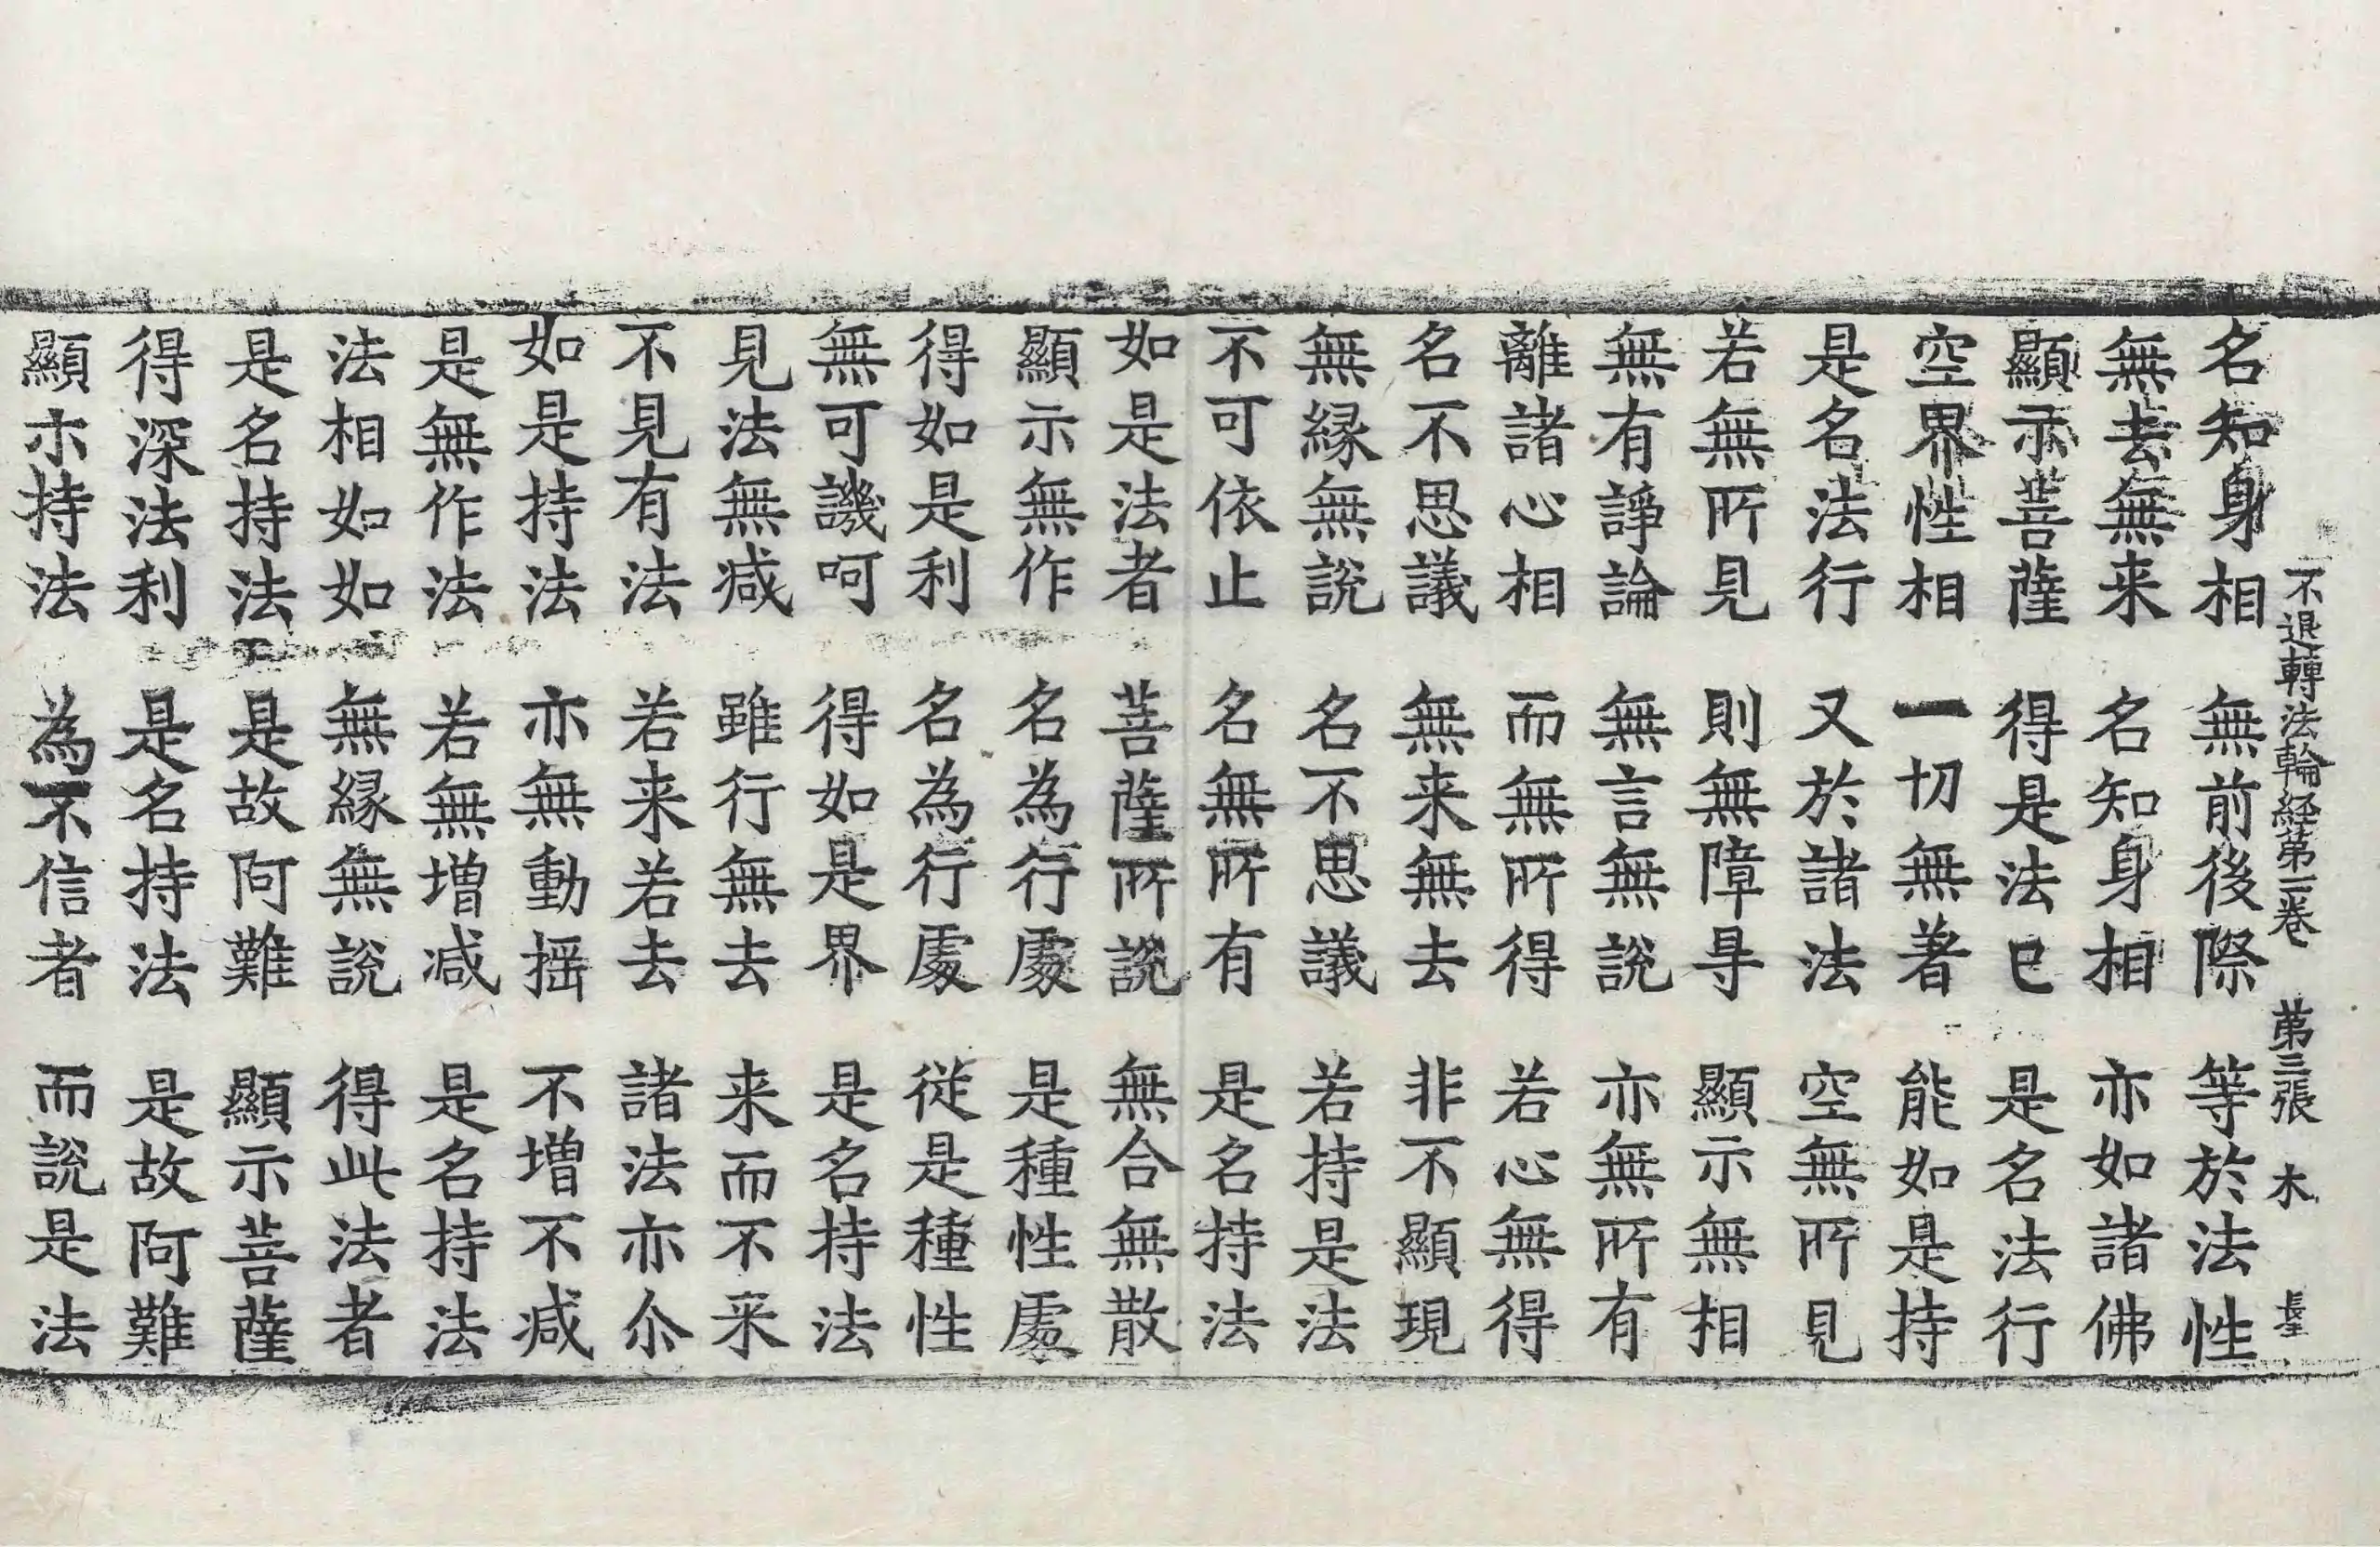 不退轉法輪経第二卷　第三張　木　長王
名知身相　無前後際　等於法性
無去無来　名知身相　亦如諸佛
顯示菩薩　得是法已　是名法行
空界性相　一切無著　能如是持
是名法行　又於諸法　空無所見
若無所見　則無障㝵　顯示無相
無有諍論　無言無說　亦無所有
離諸心相　而無所得　若心無得
名不思議　無来無去　非不顯現
無縁無說　名不思議　若持是法
不可依止　名無所有　是名持法
如是法者　菩薩所說　無合無散
顯示無作　名為行處　是種性處
得如是利　名為行處　従是種性
無可譏呵　得如是界　是名持法
見法無減　雖行無去　来而不来
不見有法　若来若去　諸法亦尒
如是持法　亦無動揺　不増不減
是無作法　若無増減　是名持法
法相如如　無縁無說　得此法者
是名持法　是故阿難　顯示菩薩
得深法利　是名持法　是故阿難
顯示持法　為不信者　而說是法